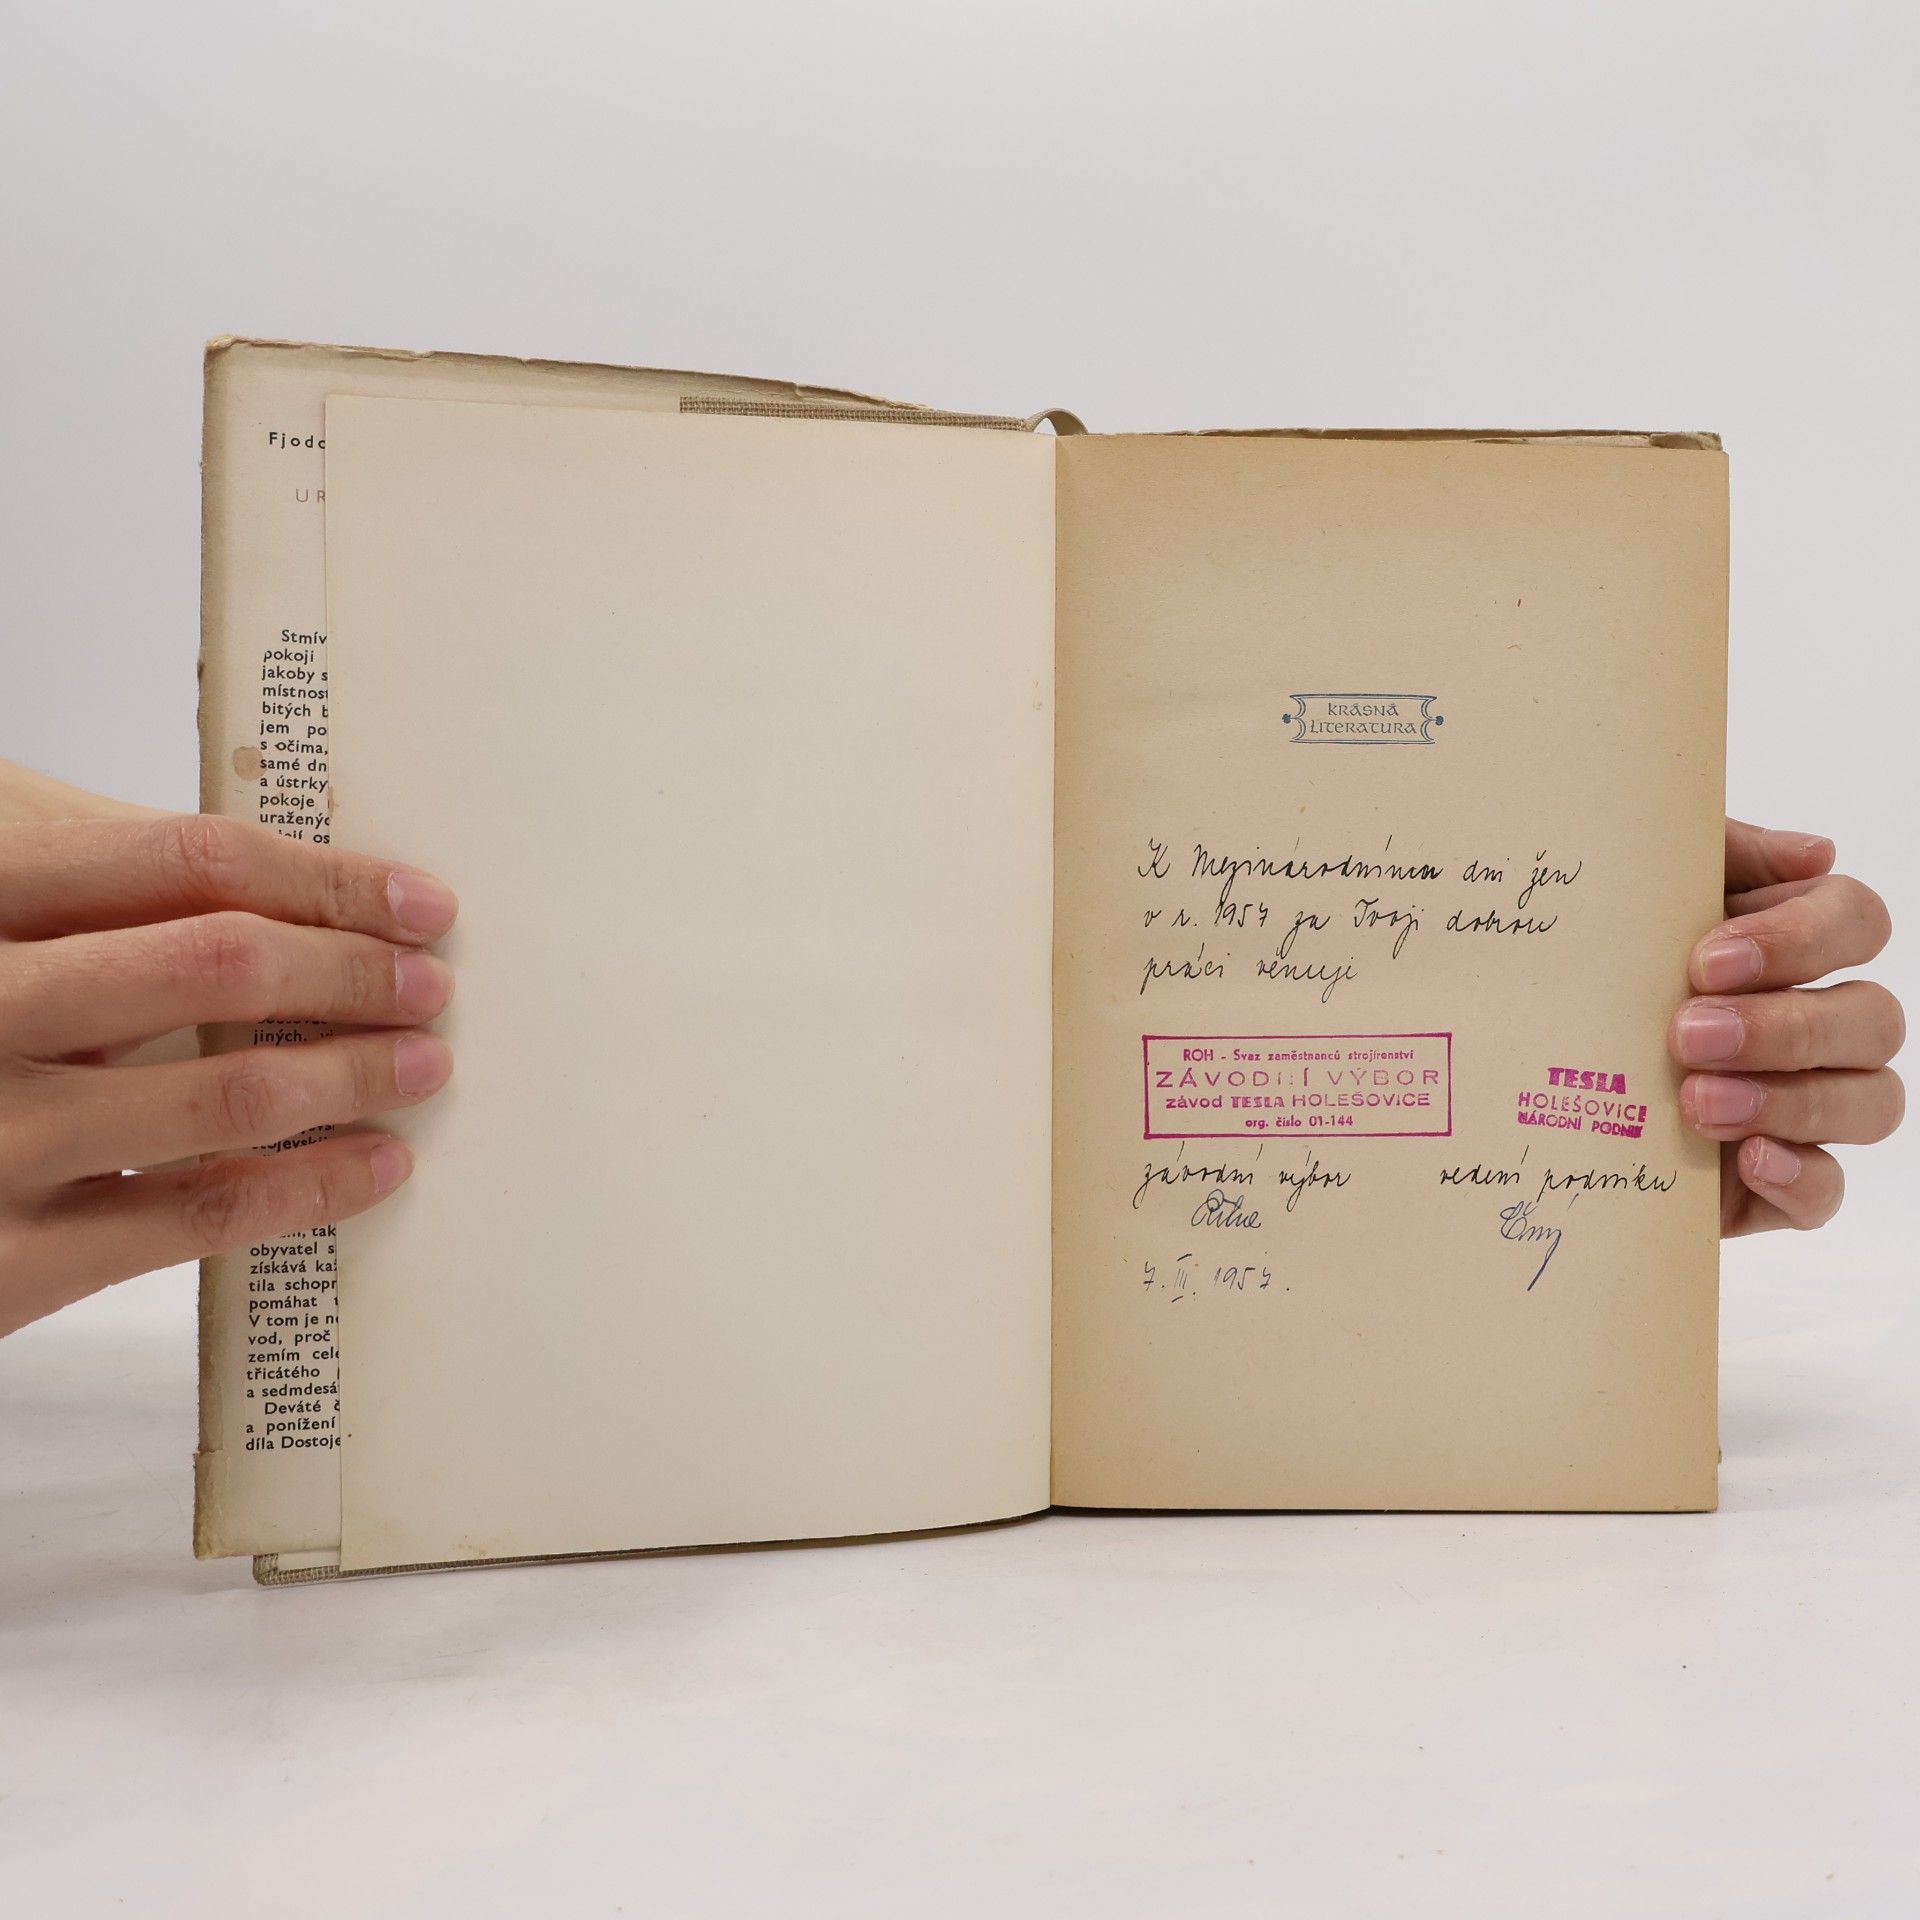 Fjodo
UR
Stmív
pokoji
jakoby s
místnost
bitých b
jem po
s očima,
samé dn
a ústrky
pokoje
uraženýc
ejí os
jiných. vi
stojevski
tak
obyvatel s
získává kaž
tila schopn
pomáhat t
V tom je ne
vod, proč
zemím cele
třicátého
a sedmdesá
Deváté č
a ponížení
díla Dostoje
KRÁSNÁ
LITERATURA
K Mezinárodnímu dni žen
v r. 1957 za Tvoji dobrou
práci věnuji
ROH - Svaz zaměstnanců strojírenství
ZÁVODNÍ VÝBOR
závod TESLA HOLEŠOVICE
org. číslo 01-144
TESLA
HOLEŠOVICE
NÁRODNÍ PODNIK
závodní výbor
vedení podniku
7. III. 1957.